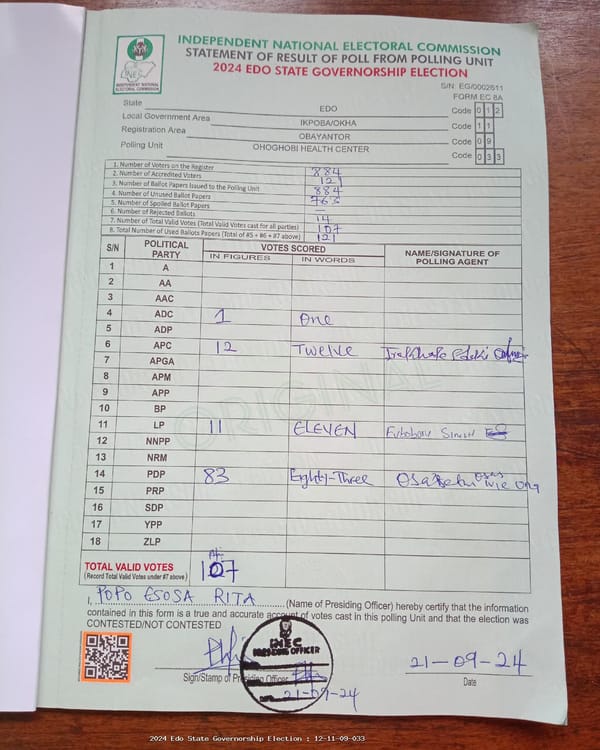 INDEPENDENT NATIONAL ELECTORAL COMMISSION
STATEMENT OF RESULT OF POLL FROM POLLING UNIT
2024 EDO STATE GOVERNORSHIP ELECTION
INEC
INDEPENDENT NATIONAL ELECTORAL COMMISSION
S/N: EG/0002611
FORM EC 8A
State EDO Code 0 1 2
Local Government Area IKPOBA/OKHA Code 1 1
Registration Area OBAYANTOR Code 0 9
Polling Unit OHOGHOBI HEALTH CENTER Code 0 3 3
1. Number of Voters on the Register 884
2. Number of Accredited Voters 121
3. Number of Ballot Papers Issued to the Polling Unit 884
4. Number of Unused Ballot Papers 763
5. Number of Spoiled Ballot Papers
6. Number of Rejected Ballots 14
7. Number of Total Valid Votes (Total Valid Votes cast for all parties) 107
8. Total Number of Used Ballots Papers (Total of #5 + #6 + #7 above) 121
S/N POLITICAL PARTY VOTES SCORED NAME/SIGNATURE OF POLLING AGENT
IN FIGURES IN WORDS
1 A
2 AA
3 AAC
4 ADC 1 One
5 ADP
6 APC 12 Twelve
7 APGA
8 APM
9 APP
10 BP
11 LP 11 ELEVEN
12 NNPP
13 NRM
14 PDP 83 Eighty-Three
15 PRP
16 SDP
17 YPP
18 ZLP
ORIGINAL
TOTAL VALID VOTES 107
(Record Total Valid Votes under #7 above)
I, POPO ESOSA RITA (Name of Presiding Officer) hereby certify that the information
contained in this form is a true and accurate account of votes cast in this polling Unit and that the election was
CONTESTED/NOT CONTESTED
INEC
PRESIDING OFFICER
21-09-24
Sign/Stamp of Presiding Officer
21-09-24
Date
2024 Edo State Governorship Election : 12-11-09-033